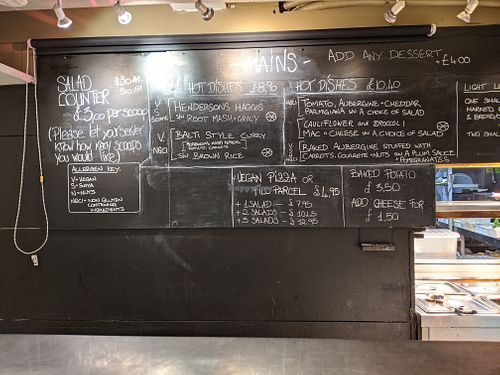 - MAINS -
ADD ANY DESSERT
+£4.00
SALAD
COUNTER
£3.00 per scoop
(Please let your server
know how many scoops
you would like)
ALLERGEN KEY:
V=VEGAN
S=SOYA
N=NUTS
NGCI=NON GLUTEN
CONTAINING
INGREDIENTS
HOT DISHES
HENDERSONS HAGGIS
ROOT MASH + GRAVY
BALTI STYLE CURRY
BROWN RICE
HOT DISHES £10.40
TOMATO, AUBERGINE + CHEDDAR
PARMIGIANA A CHOICE OF SALAD
CAULIFLOWER AND BROCOLI
MAC + CHEESE A CHOICE OF SALAD
BAKED AUBERGINE STUFFED WITH
CARROTS, COURGETTE + NUTS IN A PLUM SAUCE
VEGAN PIZZA OR
FILO PARCEL £4.95
+ 1 SALAD - £7.95
+ 2 SALADS - £10.45
+ 3 SALADS - £12.95
BAKED POTATO
£3.50
ADD CHEESE FOR
£1.50
LIGHT
ONE SMALL
ONE SMALL